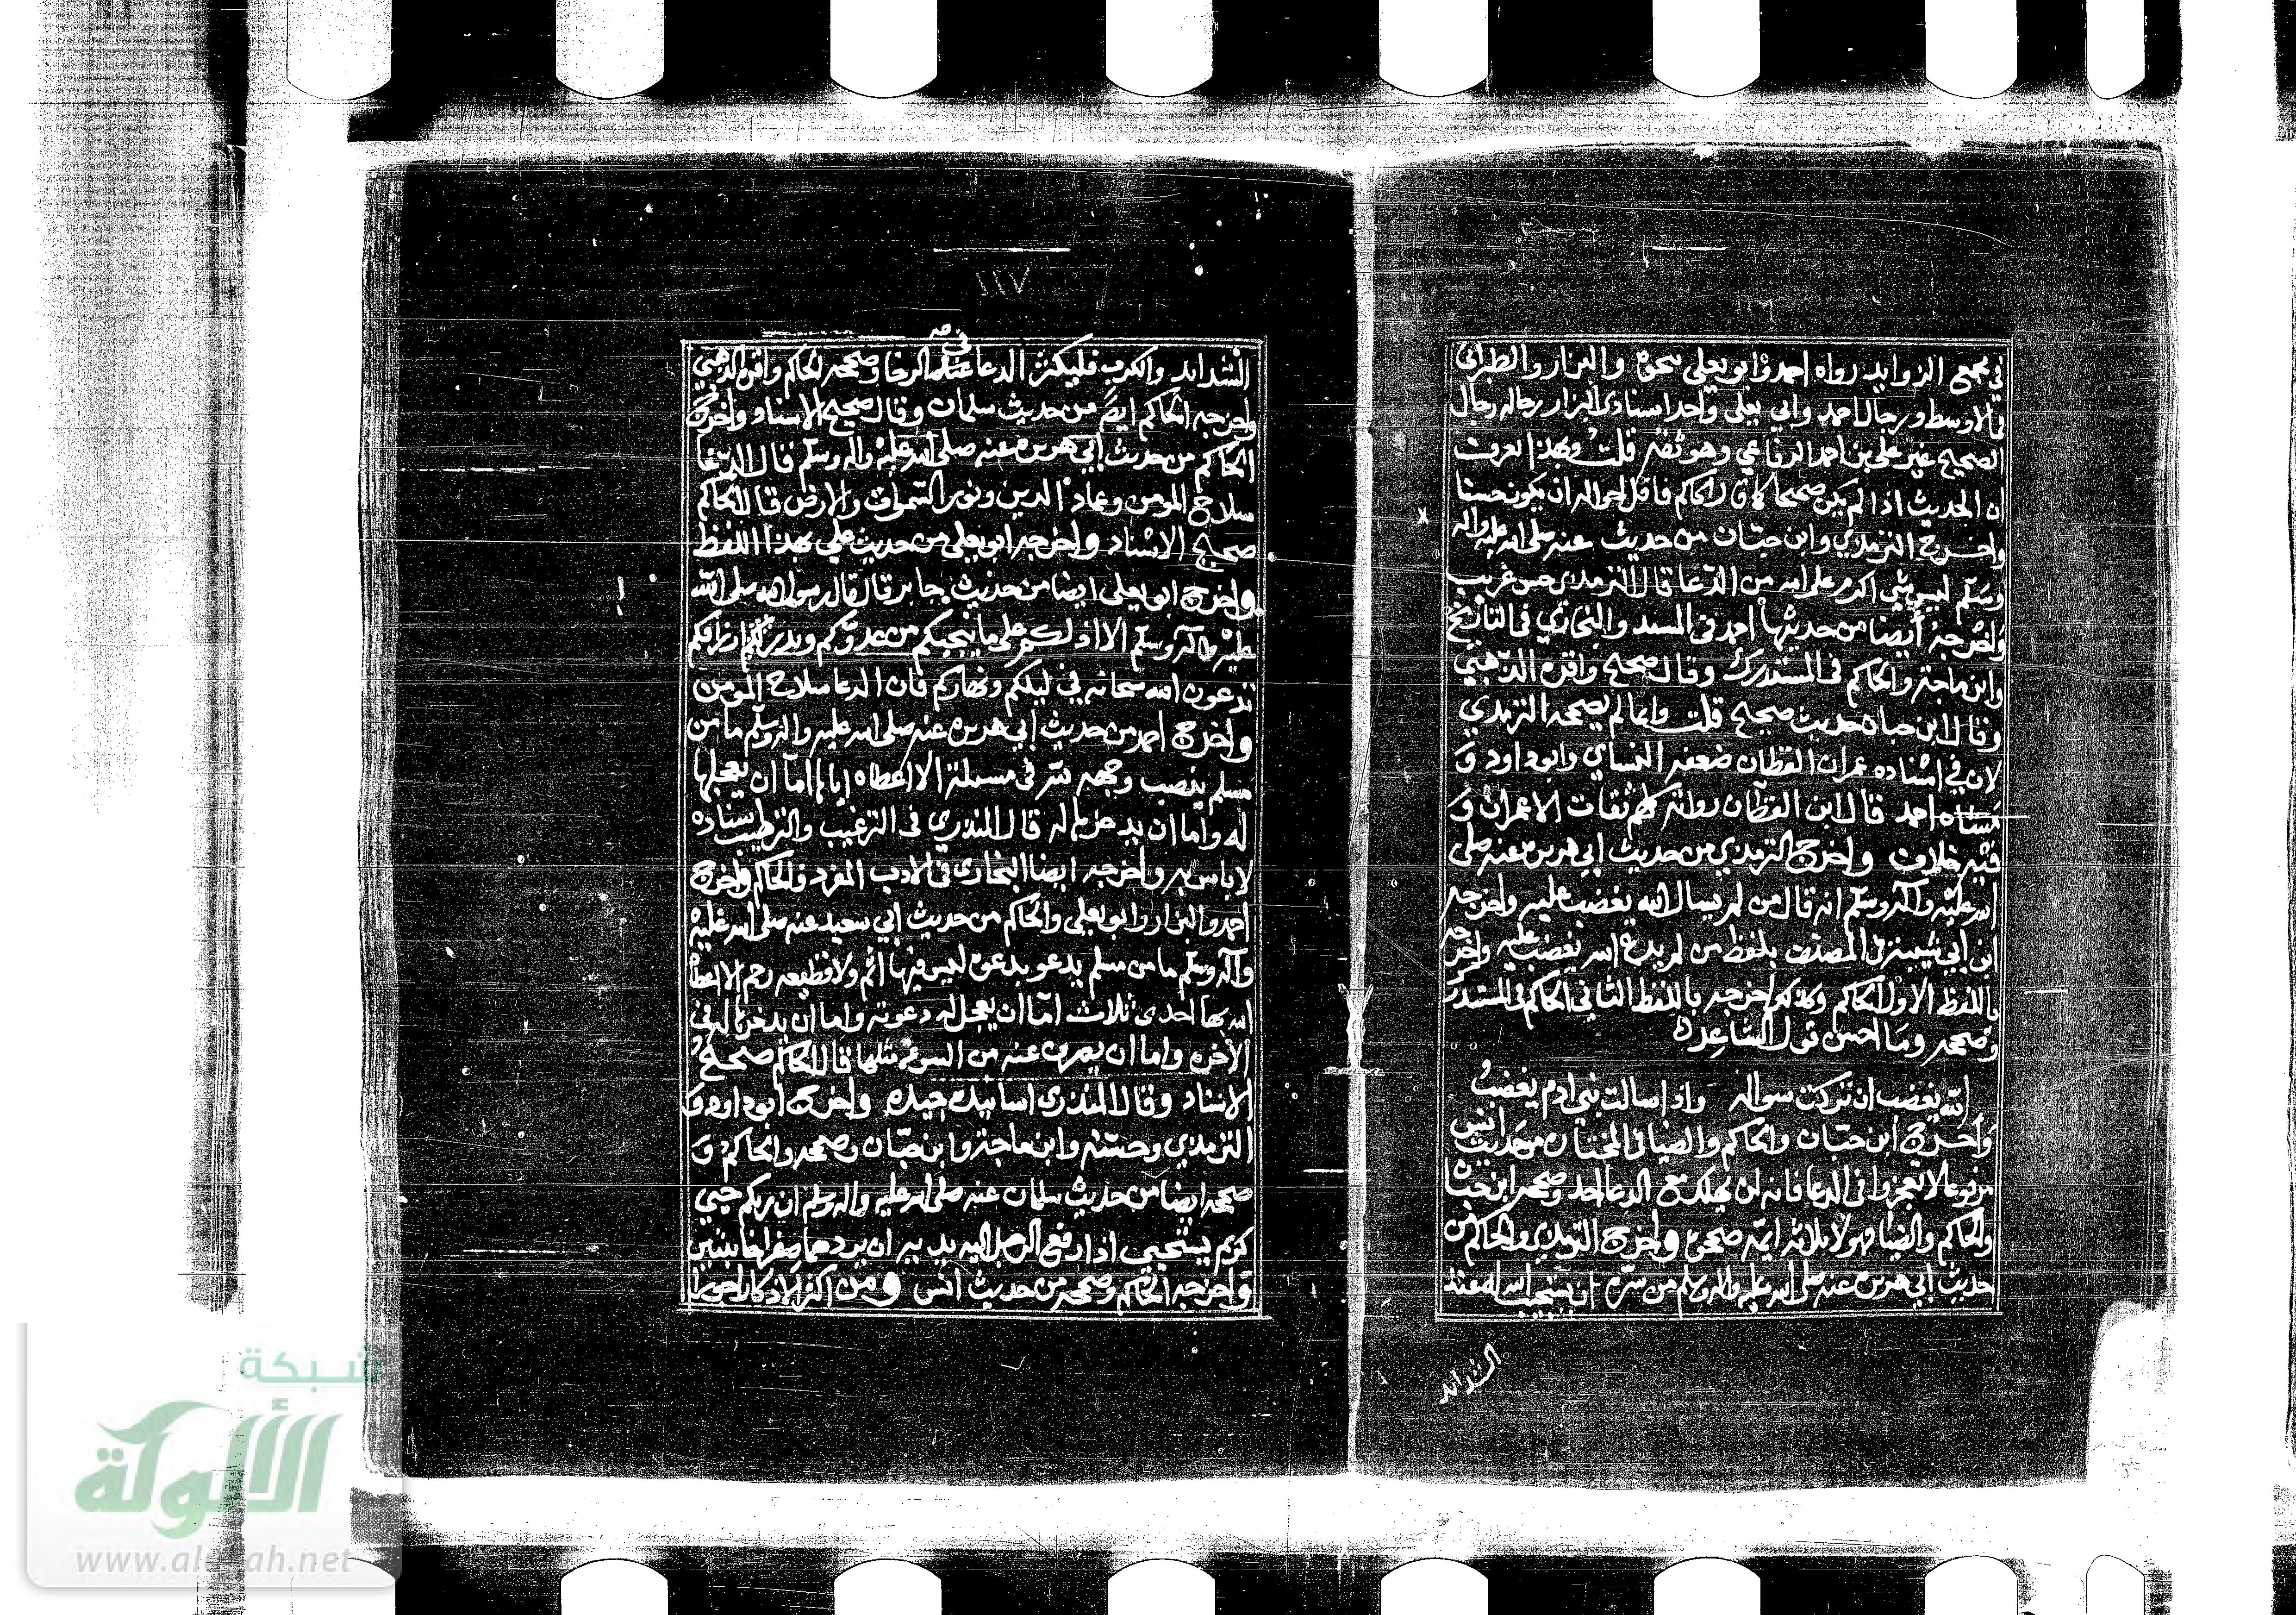 في مجمع الزوايد رواه احمد وابو يعلى بنحوه والبزار والطبراني
في الاوسط ورجال احمد وابي يعلى واحد اسنادي البزار رجاله رجال
الصحيح غير علي بن احمد الرفاعي وهو ثقه قلت وبهذا تعرف
ان الحديث اذا لم يكن صحيحا كما قال الحاكم فاقل احواله ان يكون حسنا
واخرج الترمذي وابن حبان من حديث عنه صلى الله عليه واله
وسلم ليس شي اكرم على الله من الدعا قال الترمذي حسن غريب
واخرجه أيضا من حديثها احمد في المسند والبخاري في التاريخ
وابن ماجة والحاكم في المستدرك وقال صحيح واقره الذهبي
وقال ابن حبان حديث صحيح قلت وانما لم يصححه الترمذي
لان في اسناده عمران القطان ضعفه النساي وابو داود و
مشاه احمد قال ابن القطان رواته كلهم ثقات الا عمران و
فيه خلاف واخرج الترمذي من حديث ابي هريره عنه صلى
الله عليه وآله وسلم انه قال من لم يسال الله يغضب عليه واخرجه
ابن ابي شيبة في المصنف بلفظ من لم يدع الله يغضب عليه واخرجه
باللفظ الاول الحاكم وكذلك اخرجه باللفظ الثاني الحاكم في المستدرك
وصححه وما احسن قول الشاعر
الله يغضب ان تركت سواله واذا سالت بني ادم يغضب
واخرج ابن حبان والحاكم والضيا في المختاره من حديث انس
مرفوعا لا تعجزوا في الدعا فانه لن يهلك مع الدعا احد وصححه ابن حبان
والحاكم والضيا فهولا ثلاثة ايمه صححوه واخرج الترمذي والحاكم من
حديث ابي هريره عنه صلى الله عليه واله وسلم من سره ان يستجيب الله له عند
الشدائد
١١٧
الشدايد والكرب فليكثر الدعا في الرخا وصححه الحاكم واقره الذهبي
واخرجه الحاكم ايضً من حديث سلمان وقال صحيح الاسناد واخرج
الحاكم من حديث ابي هريره عنه صلى الله عليه واله وسلم قال الدعا
سلاح المومن وعماد الدين ونور السموات والارض قال الحاكم
صحيح الاسناد واخرجه ابو يعلى من حديث علي بهذا اللفظ
واخرج ابو يعلى ايضا من حديث جابر قال قال رسول الله صلى الله
عليه وآله وسلم الا ادلكم على ما ينجيكم من عدوكم ويدر لكم ارزاقكم
تدعون الله سبحانه في ليلكم ونهاركم فان الدعا سلاح المومن
واخرج احمد من حديث ابي هريره عنه صلى الله عليه واله وسلم ما من
مسلم ينصب وجهه لله في مسئلة الا اعطاه اياها اما ان يعجلها
له واما ان يدخرها له قال المنذري في الترغيب والترهيب اسناده
لا باس به واخرجه ايضا البخاري في الادب المفرد والحاكم واخرج
احمد والبزار وابو يعلى والحاكم من حديث ابي سعيد عنه صلى الله عليه
وآله وسلم ما من مسلم يدعو بدعوة ليس فيها اثم ولا قطيعه رحم الا اعطاه
الله بها احدى ثلاث اما ان يعجل له دعوته واما ان يدخرها له في
الاخره واما ان يصرف عنه من السوء مثلها قال الحاكم صحيح
الاسناد وقال المنذري اسانيده جيده واخرج ابو داود و
الترمذي وحسنه وابن ماجة وابن حبان وصححه والحاكم و
صححه ايضا من حديث سلمان عنه صلى الله عليه واله وسلم ان ربكم حيي
كريم يستحيي اذا رفع الرجل اليه يديه ان يردهما صفرا خايبتين
واخرجه الحاكم وصححه من حديث انس ومن اكثر الاذكار اجورا
شبكة
الألوكة
www.alukah.net